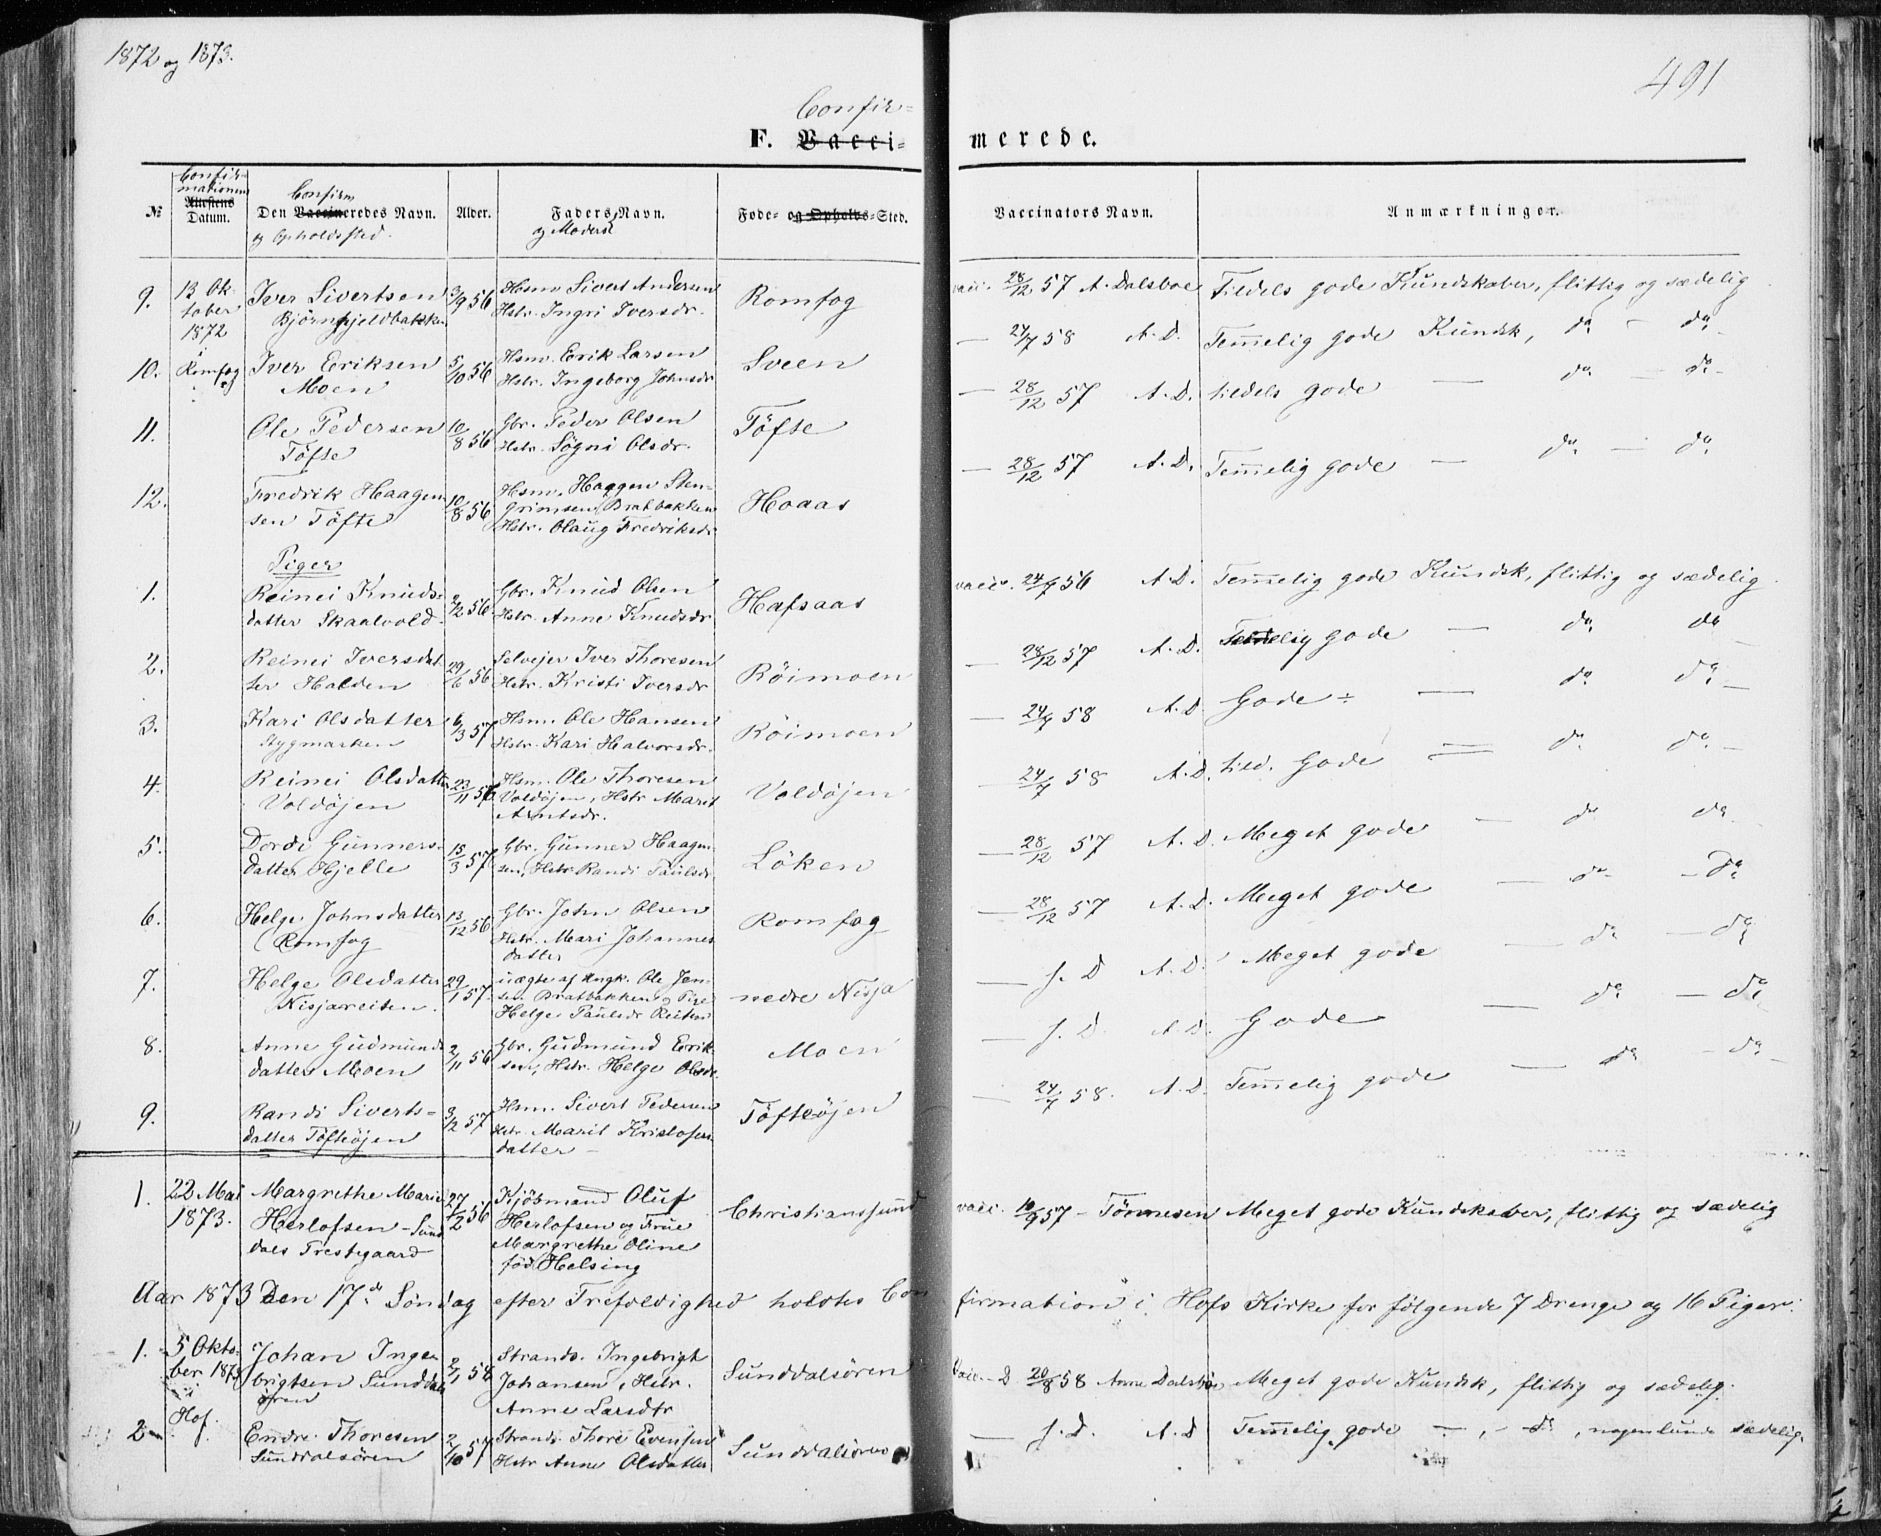 1872 og 1873.
491
Confir-
F. Vacci-
merede.
Confir-
mationens
Attestens
Datum.
№
Confirm
Den Vaccineredes Navn.
og Opholdssted.
Alder.
Faders Navn.
og Moders
Føde- og Opholds-Sted.
Vaccinators Navn.
Anmærkninger.
9. 13 Ok- Iver Sivertsen 3/9 56 Hsm Sivert Andersen Romfog vacc. 28/12 57 A. Dalsboe Tildels gode Kundskaber, flittig og sædelig
tober Hstr. Ingri Iversdr.
1872
i
10. Romfog Iver Eriksen 5/10 56 Hsm. Erik Larsen Sveen — 24/7 58 A. D. Temmelig gode Kundsk, do - do
Moen Hstr. Ingeborg Johnsdr
11. Ole Pedersen 10/8 56 Gbr. Peder Olsen Töfte — 28/12 57 A. D. tildels gode — do - do
Töfte Hstr. Søgni Olsdr.
12. Fredrik Haagen- 10/8 56 Hsm. Haagen Sten- Hoaas — 28/12 57 A. D. Temmelig gode — do - do
sen Töfte grimsen Bratbakken
Hstr. Olaug Fredriksdr
Piger
1. Reinei Knuds- 2/2 56 Gbr. Knud Olsen Hafsaas vacc. 24/7 56 A. D. Temmelig gode Kundsk, flittig og sædelig
datter Skaalvold Hstr. Anne Knudsdr
2. Reinei Iversdat- 29/6 56 Selvejer Iver Thoresen Röimoen — 28/12 57 A. D. gode — do do
ter Halden Hstr. Kristi Iversdr
3. Kari Olsdatter 6/3 57 Hsm. Ole Hansen Röimoen — 24/7 58 A. D. Gode — do do
Stygmarken Hstr. Kari Halvorsdr.
4. Reinei Olsdatter 23/11 56 Hsm. Ole Thoresen Voldöjen — 24/7 58 A. D. tild. Gode — do do
Voldöjen Voldöjen, Hstr Marit
Arntsdr.
5. Dordi Gunners- 15/3 57 Gbr. Gunner Haagen- Löken — 28/12 57 A. D. Meget gode — do do
datter Hjelle sen, Hstr Randi Paulsdr
6. Helge Johnsdatter 13/12 56 Gbr. John Olsen Romfog — 28/12 57 A. D. Meget gode — do - do
Romfog Hstr. Mari Johannes
datter
7. Helge Olsdatter 29/1 57 uægte af Ungk. Ole Jen- nedre Nisja — s. D A. D. Meget gode — do - do
Nisjareiten. sen Bratbakken og Pige
Helge Paulsdr Reiten
8. Anne Gudmunds 2/11 56 Gbr. Gudmund Erik- Moen — s. D. A. D. Gode — do - do
datter Moen sen, Hstr. Helge Olsdr.
9. Randi Siverts- 3/2 57 Hsm. Sivert Pedersen Töfteöjen — 24/7 58. A. D. Temmelig gode — do - do
datter Töfteöjen Hstr. Marit Kristofers
datter
1. 22 Mai Margrethe Marie 27/2 56 Kjöbmand Oluf Christianssund vacc. 10/9 57 - Törnesen Meget gode Kundskaber, flittig og sædelig
1873. Herlofsen - Sund Herlofsen og Frue
dals Prestegaard Margrethe Oline
född Helsing
Aar 1873 Den 17de Söndag efter Trefoldighed holdtes Confirmation i Hofs Kirke for følgende 7 Drenge og 16 Piger:
1. 5 Okto- Johan Inge- 2/1 58 Strands. Ingebrigt Sunddalsören Vacc. D 20/8 58 Anne Meget gode Kundsk, flittig og sædelig.
ber 1873 brigtsen Sunddals Johansen, Hstr.
i ören Anne Larsdtr
Hof.
2 Endre Thoresen 2/10 57 Strands. Thore Evensen Sunddalsören — s. D. A. D Temmelig gode —, - do, nogenlunde sædelig.
Sunddalsören Hstr Anne Olsdatter